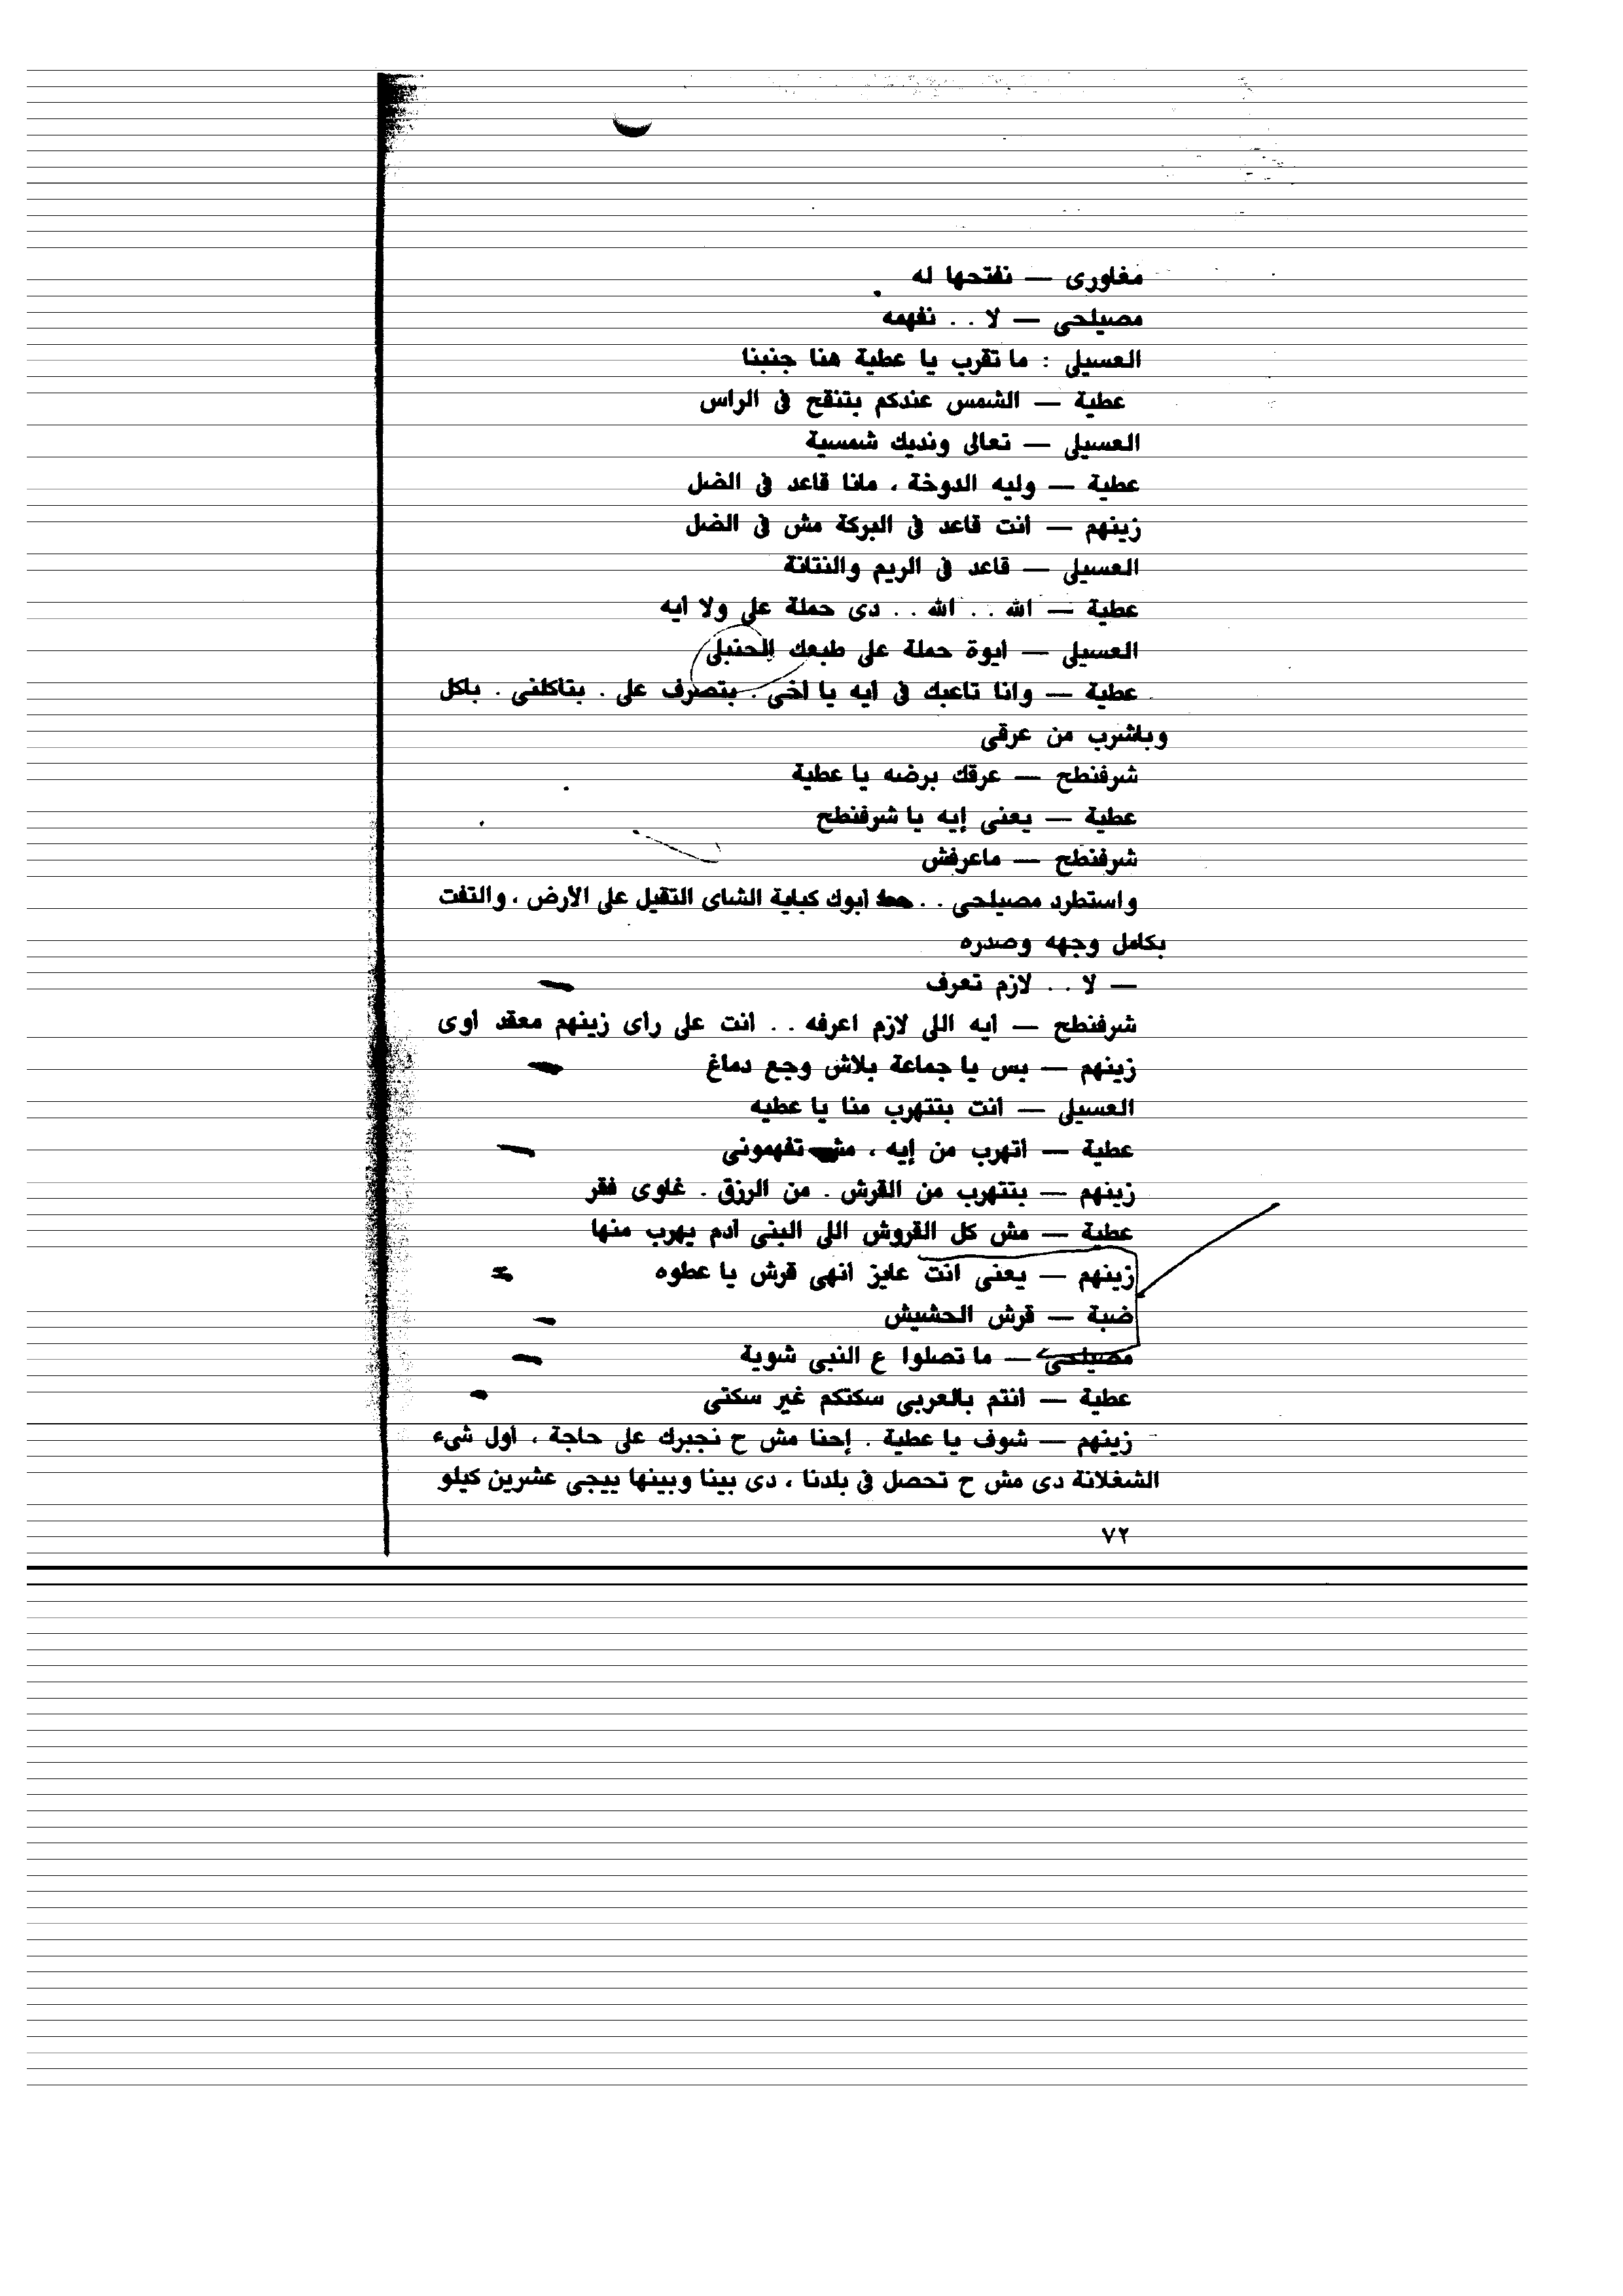 مغاورى — نفتحها له
مصيلحى — لا . . نفهمه
العسيلى : ما تقرب يا عطية هنا جنبنا
عطية — الشمس عندكم بتنقح فى الراس
العسيلى — تعالى ونديك شمسية
عطية — وليه الدوخة ، مانا قاعد فى الضل
زينهم — أنت قاعد فى البركة مش فى الضل
العسيلى — قاعد فى الريم والنتانة
عطية — الله . . الله . . دى حملة على ولا أيه
العسيلى — أيوة حملة على طبعك الحنبلى
عطية — وانا تاعبك فى أيه يا أخى . بتصرف على . بتأكلنى . باكل
وباشرب من عرقى
شرفنطح — عرقك برضه يا عطية
عطية — يعنى إيه يا شرفنطح
شرفنطح — ماعرفش
واستطرد مصيلحى . . حط أبوك كباية الشاى التقيل على الأرض ، والتفت
بكامل وجهه وصدره
— لا . . لازم تعرف
شرفنطح — أيه اللى لازم أعرفه . . أنت على رأى زينهم معقد أوى
زينهم — بس يا جماعة بلاش وجع دماغ
العسيلى — أنت بتتهرب منا يا عطيه
عطية — أتهرب من إيه ، مش تفهمونى
زينهم — بتتهرب من القرش . من الرزق . غاوى فقر
عطية — مش كل القروش اللى البنى أدم يهرب منها
زينهم — يعنى أنت عايز أنهى قرش يا عطوه
ضبة — قرش الحشيش
مصيلحى — ما تصلوا ع النبى شوية
عطية — أنتم بالعربى سكتكم غير سكتى
زينهم — شوف يا عطية . إحنا مش ح نجبرك على حاجة ، أول شىء
الشغلانة دى مش ح تحصل فى بلدنا ، دى بينا وبينها ييجى عشرين كيلو
٧٢